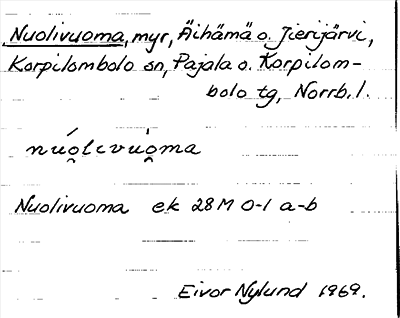 Nuolivuoma, myr, Äihämä o. Jierijärvi,
Korpilombolo sn, Pajala o. Korpilom-
bolo tg, Norrb. l.
núo̯livùo̯ma
Nuolivuoma ek 28 M 0-1 a-b
Eivor Nylund 1969.